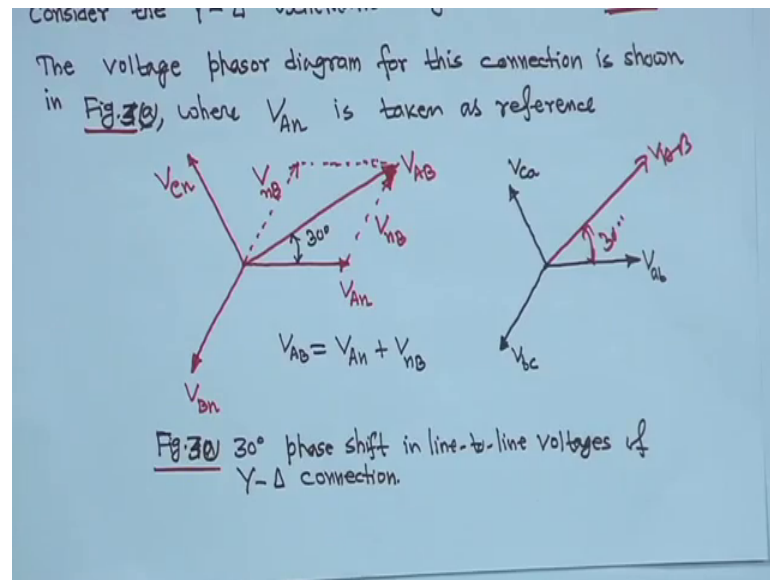 Consider the Y-Δ
The voltage phasor diagram for this connection is shown
in Fig.3(a), where VAn is taken as reference
VCn
VnB
VAB
30°
VnB
VAn
VBn
VAB = VAn + VnB
Vca
VAB
30°
Vab
Vbc
Fig.3(a) 30° phase shift in line-to-line voltages of
Y-Δ connection.